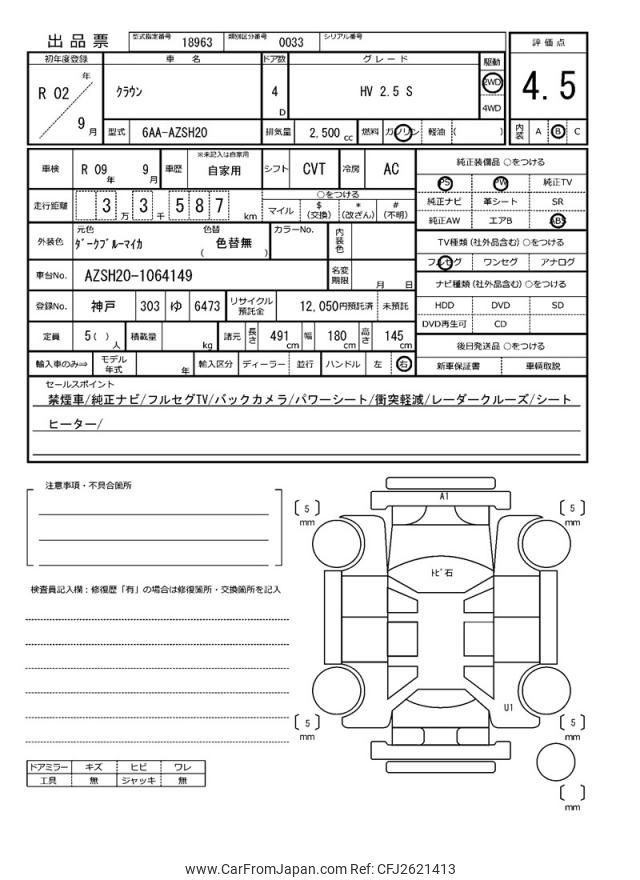 出品票 型式指定番号 18963 類別区分番号 0033 シリアル番号
初年度登録 車名 ドア数 グレード 駆動 評価点
R 02 年 9 月 クラウン 4 D HV 2.5 S 2WD 4WD 4.5
型式 6AA-AZSH20 排気量 2,500 cc 燃料 ガソリン 軽油 ( ) 内装 A B C
車検 R 09 年 9 月 車歴 ※未記入は自家用 自家用 シフト CVT 冷房 AC
純正装備品 ○をつける
PS PW 純正TV
純正ナビ 革シート SR
純正AW エアB ABS
走行距離 3 万 3 千 5 8 7 km
○をつける
マイル $ (交換) * (改ざん) # (不明)
外装色 元色 ダークブルーマイカ 色替 ( 色替無 ) カラーNo. 内装色
TV種類 (社外品含む) ○をつける
フルセグ ワンセグ アナログ
車台No. AZSH20-1064149 名変期限 月 日
ナビ種類 (社外品含む) ○をつける
HDD DVD SD
DVD再生可 CD
登録No. 神戸 303 ゆ 6473 リサイクル預託金 12,050円預託済 未預託
定員 5( ) 人 積載量 kg 諸元 長さ 491 cm 幅 180 cm 高さ 145 cm
後日発送品 ○をつける
新車保証書 車輌取説
輸入車のみ⇒ モデル年式 年 輸入区分 ディーラー 並行 ハンドル 左 右
セールスポイント
禁煙車/純正ナビ/フルセグTV/バックカメラ/パワーシート/衝突軽減/レーダークルーズ/シート
ヒーター/
注意事項・不具合箇所
検査員記入欄：修復歴「有」の場合は修復箇所・交換箇所を記入
A1
5 mm
5 mm
トビ石
U1
5 mm
5 mm
mm
ドアミラー キズ ヒビ ワレ
工具 無 ジャッキ 無
www.CarFromJapan.com Ref: CFJ2621413